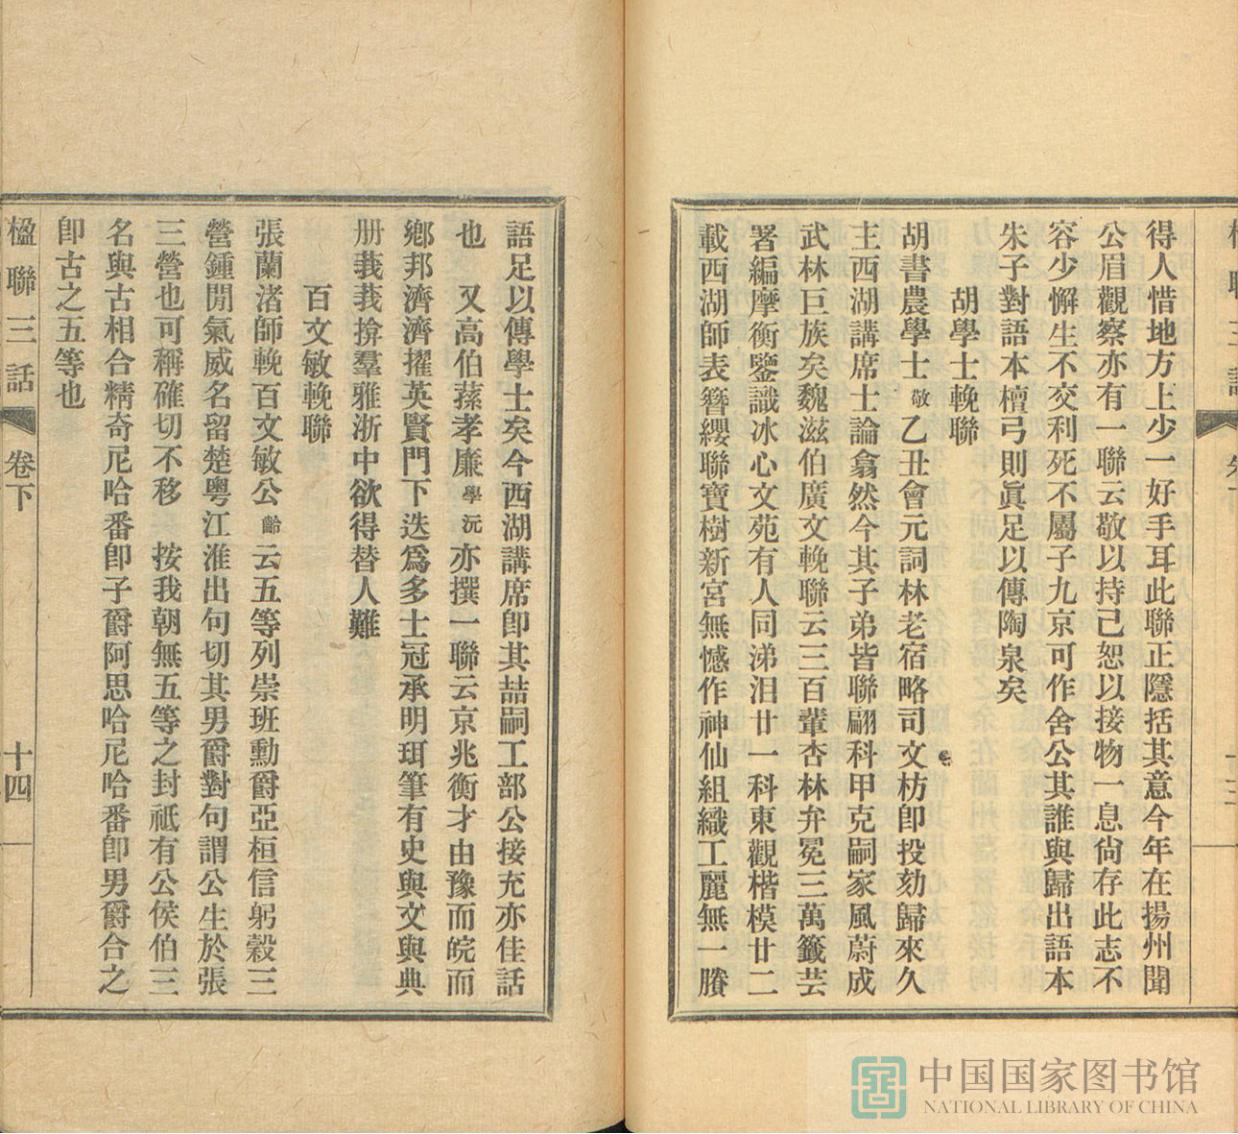 得人惜地方上少一好手耳此聯正隱括其意今年在揚州聞
公眉觀察亦有一聯云敬以持己恕以接物一息尙存此志不
容少懈生不交利死不屬子九京可作舍公其誰與歸出語本
朱子對語本檀弓則眞足以傳陶泉矣
胡學士輓聯
胡書農學士敬乙丑會元詞林老宿略司文枋卽投劾歸來久
主西湖講席士論翕然今其子弟皆聯翩科甲克嗣家風蔚成
武林巨族矣魏滋伯廣文輓聯云三百輩杏林弁冕三萬籤芸
署編摩衡鑒識冰心文苑有人同涕泪廿一科東觀楷模廿二
載西湖師表簪纓聯寶樹新宮無憾作神仙組織工麗無一賸
語足以傳學士矣今西湖講席卽其喆嗣工部公接充亦佳話
也 又高伯蓀孝廉學沅亦撰一聯云京兆衡才由豫而皖而
鄉邦濟濟擢英賢門下迭爲多士冠承明珥筆有史與文與典
册莪莪揜羣雅浙中欲得替人難
百文敏輓聯
張蘭渚師輓百文敏公齡云五等列崇班勳爵亞桓信躬穀三
營鍾閒氣威名留楚粵江淮出句切其男爵對句謂公生於張
三營也可稱確切不移 按我朝無五等之封祇有公侯伯三
名與古相合精奇尼哈番卽子爵阿思哈尼哈番卽男爵合之
卽古之五等也
楹聯三話 卷下 十四
中国国家图书馆
NATIONAL LIBRARY OF CHINA